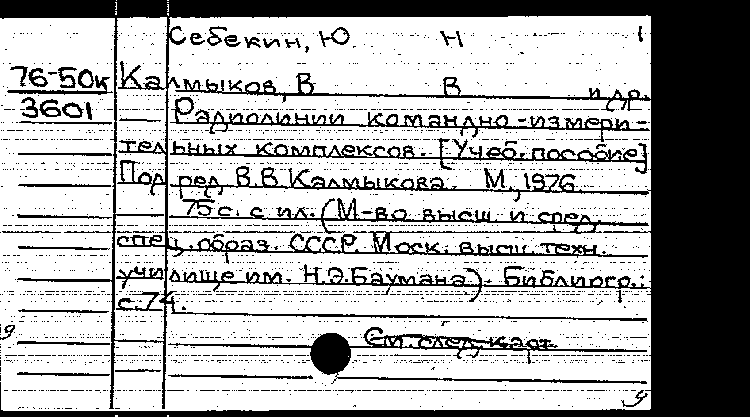 Себекин, Ю Н 1
76-50к Калмыков, В В и др.
3601 Радиолинии командно-измери-
тельных комплексов. [Учеб. пособие]
Под ред. В.В. Калмыкова. М., 1976.
75 с. с ил. (М-во высш и сред.
спец. образ. СССР. Моск. высш. техн.
училище им. Н.Э. Баумана). Библиогр.:
с. 74.
См. след. карт.